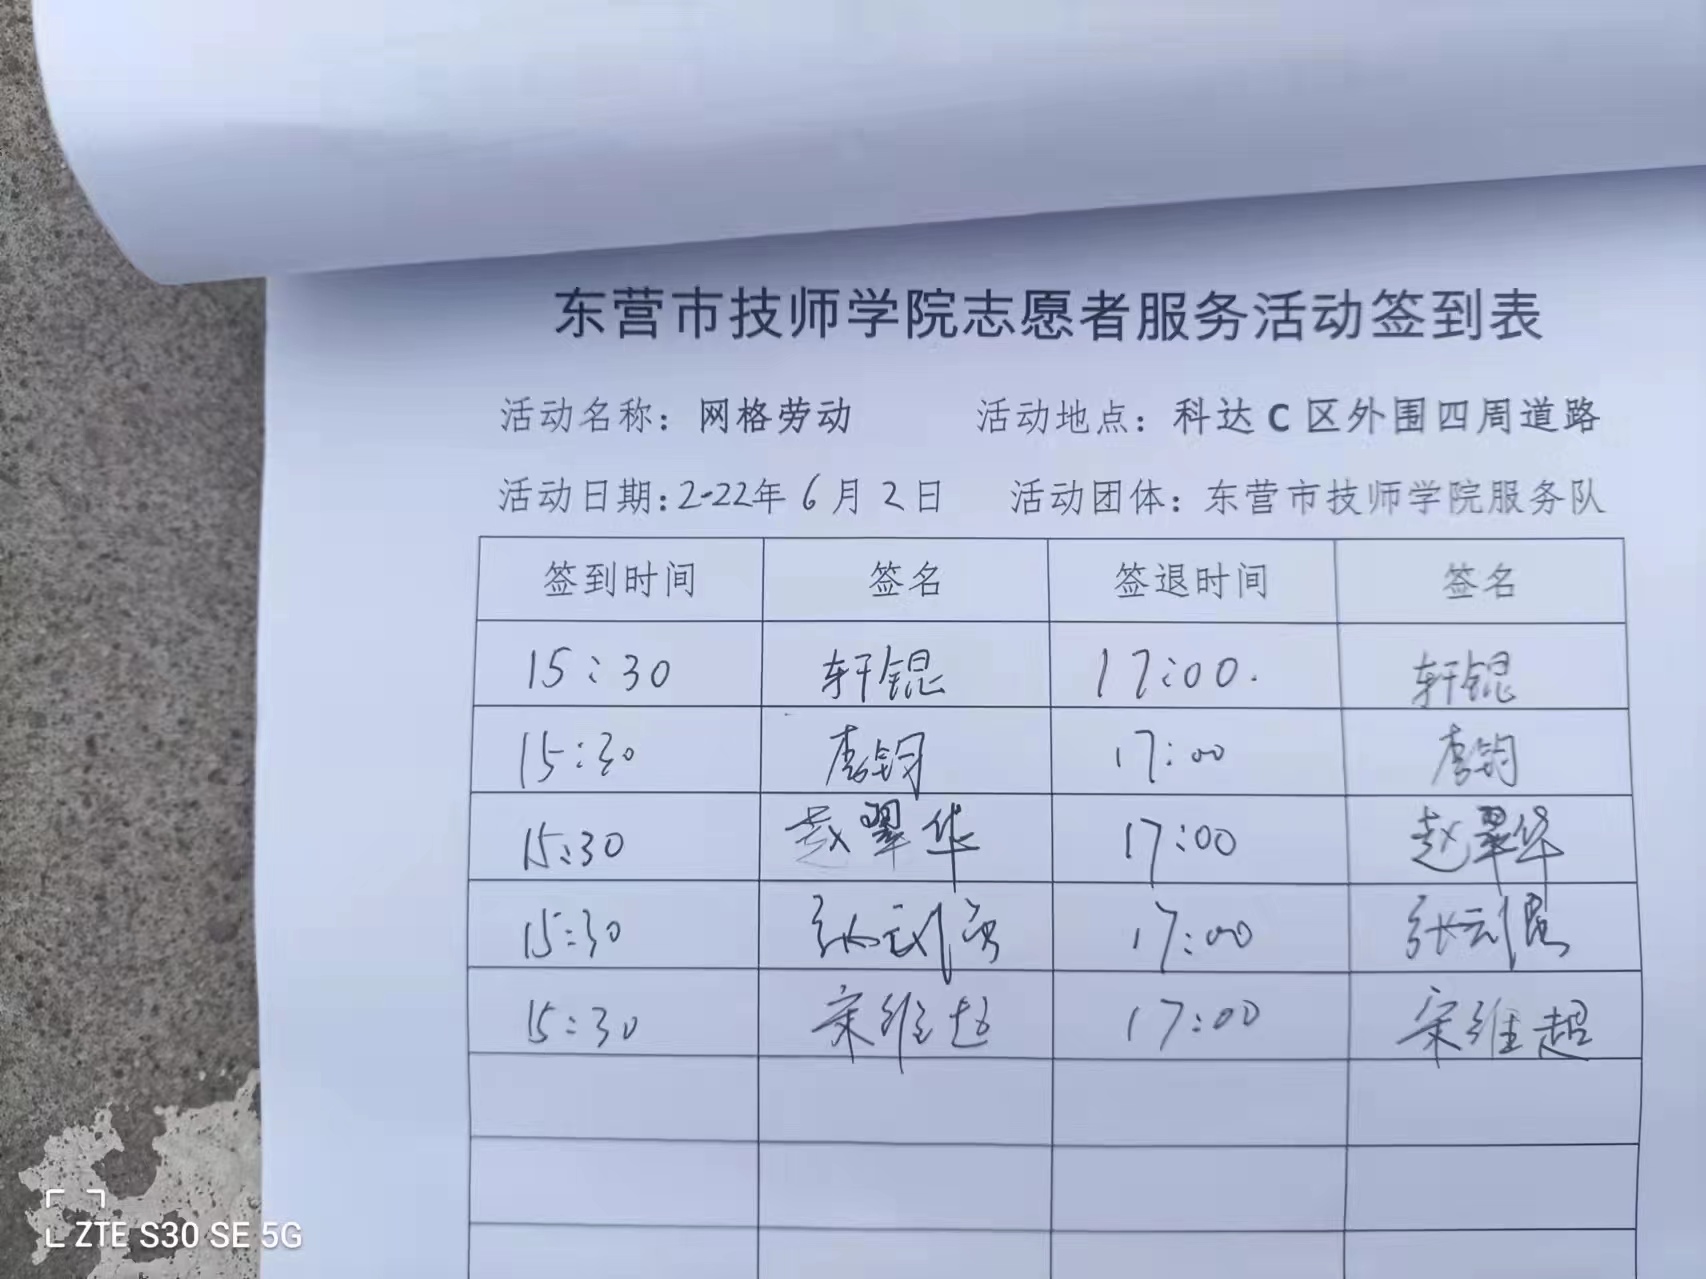 东营市技师学院志愿者服务活动签到表
活动名称：网格劳动 活动地点：科达C区外围四周道路
活动日期：2-22年6月2日 活动团体：东营市技师学院服务队
签到时间 签名 签退时间 签名
15:30 轩锟 17:00. 轩锟
15:30 唐钧 17:00 唐钧
15:30 赵翠华 17:00 赵翠华
15:30 张云 17:00 张云
15:30 宋维超 17:00 宋维超
ZTE S30 SE 5G